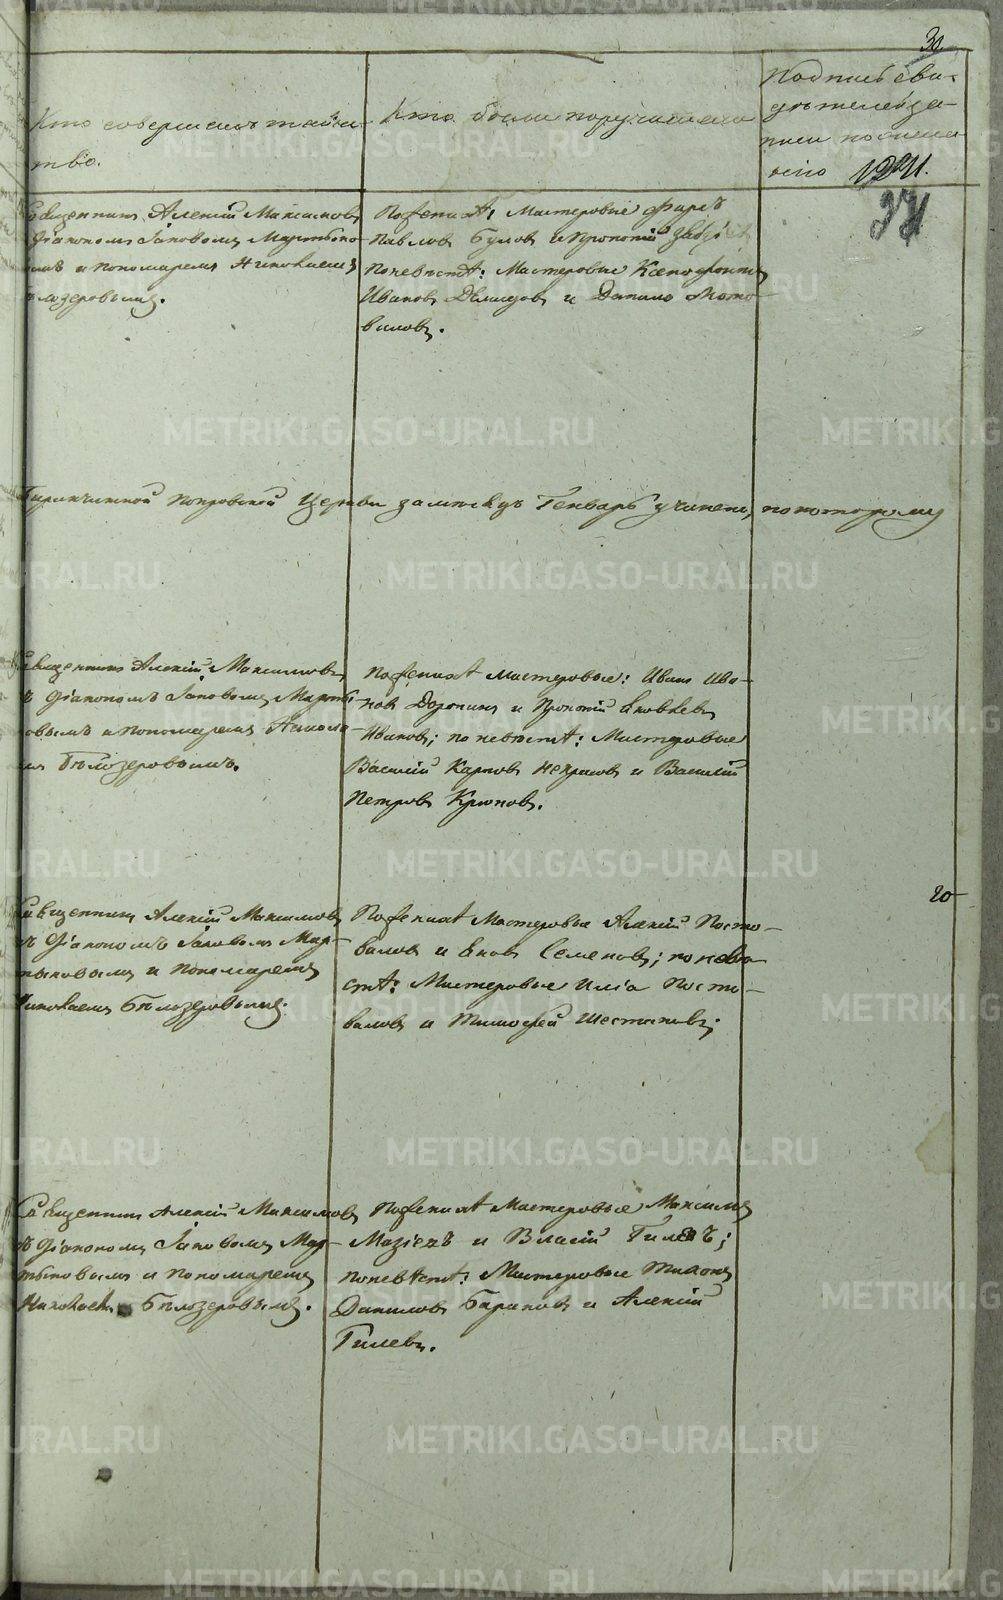 30
Кто совершалъ таин-
ство.
Кто были поручители
Подписъ сви-
дѣтелей за-
писи по жела-
нію 1221.
37
Священникъ Алексій Максимовъ
діакономъ Іаковомъ Мартыно-
вымъ и пономаремъ Николаемъ
Бѣлозеровымъ.
По женихѣ: Мастеровые
Павловъ Буловъ и Прокопій
По невѣстѣ: Мастеровые Ксенофонтъ
Ивановъ Демидовъ и Данило Мото-
виловъ.
Церкви за мѣсяцъ Генварь учинена, по которому
Священникъ Алексій Максимовъ
съ діакономъ Іаковомъ Марты-
новымъ и пономаремъ Никола-
емъ Бѣлозеровымъ.
По женихѣ Мастеровые: Иванъ Ива-
новъ Доронинъ и Прокопій Яковлевъ
Ивановъ; по невѣстѣ: Мастеровые
Василій Карповъ Некрасовъ и Василій
Петровъ Крюковъ.
20
Священникъ Алексій Максимовъ
съ діакономъ Іаковомъ Мар-
тыновымъ и пономаремъ
Николаемъ Бѣлозеровымъ.
По женихѣ Мастеровые Алексій Посто-
валовъ и Яковъ Семеновъ; по невѣ-
стѣ: Мастеровые Илія Посто-
валовъ и Тимофей Шестаковъ;
Священникъ Алексій Максимовъ
съ діакономъ Іаковомъ Мар-
тыновымъ и пономаремъ
Николаемъ Бѣлозеровымъ.
По женихѣ Мастеровые Максимъ
и Власій Гилевъ;
по невѣстѣ: Мастеровые Тихонъ
Даниловъ Барановъ и Алексій
Гилевъ.
METRIKI.GASO-URAL.RU